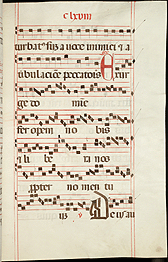 clxviii
turbatus sum a voce inimici et a
tribulacione peccatoris Exur
ge do mie
fer opem no bis
et li be ra nos
propter no men tu
us Deus au